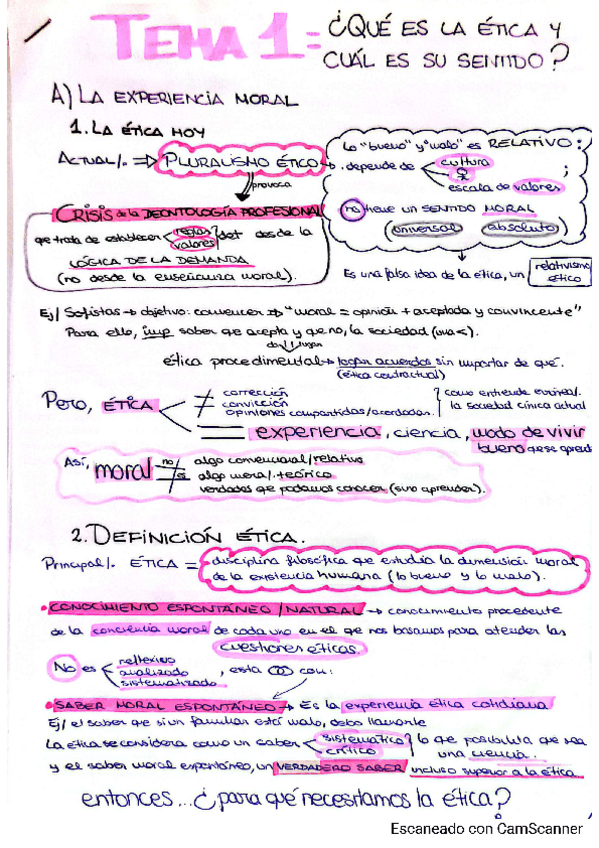 TEMA 1: ¿QUÉ ES LA ÉTICA Y
CUÁL ES SU SENTIDO?
A) LA EXPERIENCIA MORAL
1. LA ÉTICA HOY
Actual/. ⇒ PLURALISMO ÉTICO →
provoca
lo "bueno" y "malo" es RELATIVO:
· depende de
cultura
♀
escala de valores
;
no tiene un SENTIDO MORAL
(universal absoluto)
Es una falsa idea de la ética, un relativismo
ético
CRISIS de la DEONTOLOGÍA PROFESIONAL
que trata de establecer
reglas
valores
det desde la
LÓGICA DE LA DEMANDA
(no desde la enseñanza moral).
Ej/ Sofistas → objetivo: convencer ⇒ "moral = opinión + aceptada y convincente"
Para ello, imp saber que acepta y que no, la sociedad
dan lugar
ética procedimental → logar acuerdos sin importar de qué.
(ética contractual)
Pero, ÉTICA
≠ corrección
convicción
opiniones compartidas/acordadas.
como entiende
la sociedad cívica actual
= experiencia, ciencia, modo de vivir
bueno que se
Así, moral
no algo convencional/relativo
es algo teórico
verdades que podamos conocer (sino aprender).
2. DEFINICIÓN ÉTICA.
Principal/. ÉTICA = disciplina filosófica que estudia la dimensión moral
de la existencia humana (lo bueno y lo malo).
• CONOCIMIENTO ESPONTÁNEO/NATURAL → conocimiento procedente
de la conciencia moral de cada uno en el que nos basamos para atender las
cuestiones éticas.
No es
reflexivo
analizado
sistematizado
, esta con:
• SABER MORAL ESPONTÁNEO → Es la experiencia ética cotidiana
Ej/ el saber que si un familiar está malo, debo llamarle
La ética se considera como un saber
sistemático
crítico
lo que posibilita que sea
una ciencia.
y el saber moral espontáneo, un VERDADERO SABER incluso superior a la ética
entonces... ¿para qué necesitamos la ética?
Escaneado con CamScanner